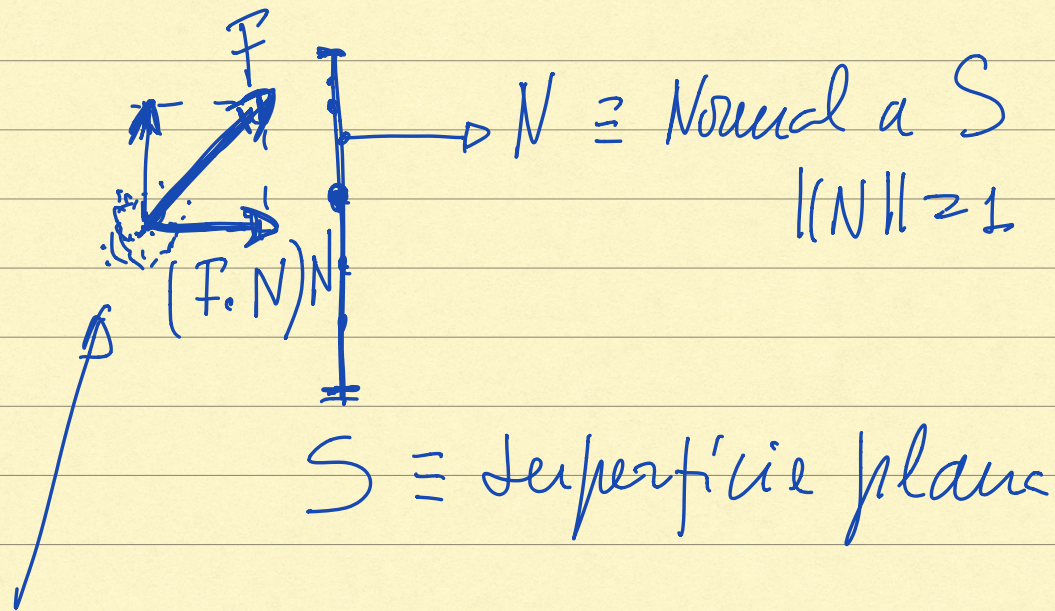 F
N ≡ Normal a S
||N|| = 1
(F. N) N
S ≡ superfície plana